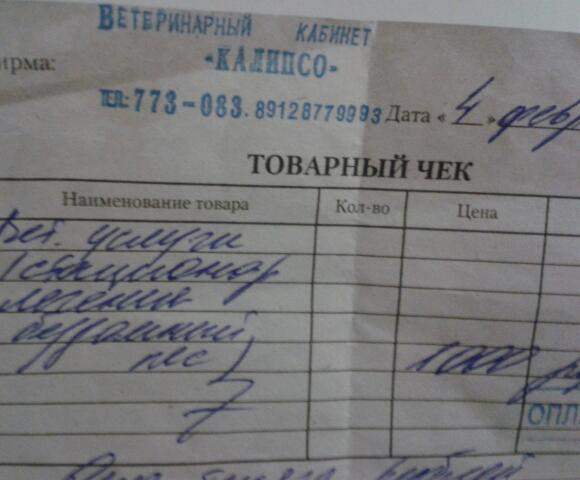 ВЕТЕРИНАРНЫЙ КАБИНЕТ
«КАЛИПСО»
ирма:
ТЕЛ: 773-083. 89128779993 Дата « 4 » февр
ТОВАРНЫЙ ЧЕК
Наименование товара Кол-во Цена
Вет. услуги
(стационар
лечение
бездомный
пес) 1000 ру
ОПЛ
Одна тысяча рублей